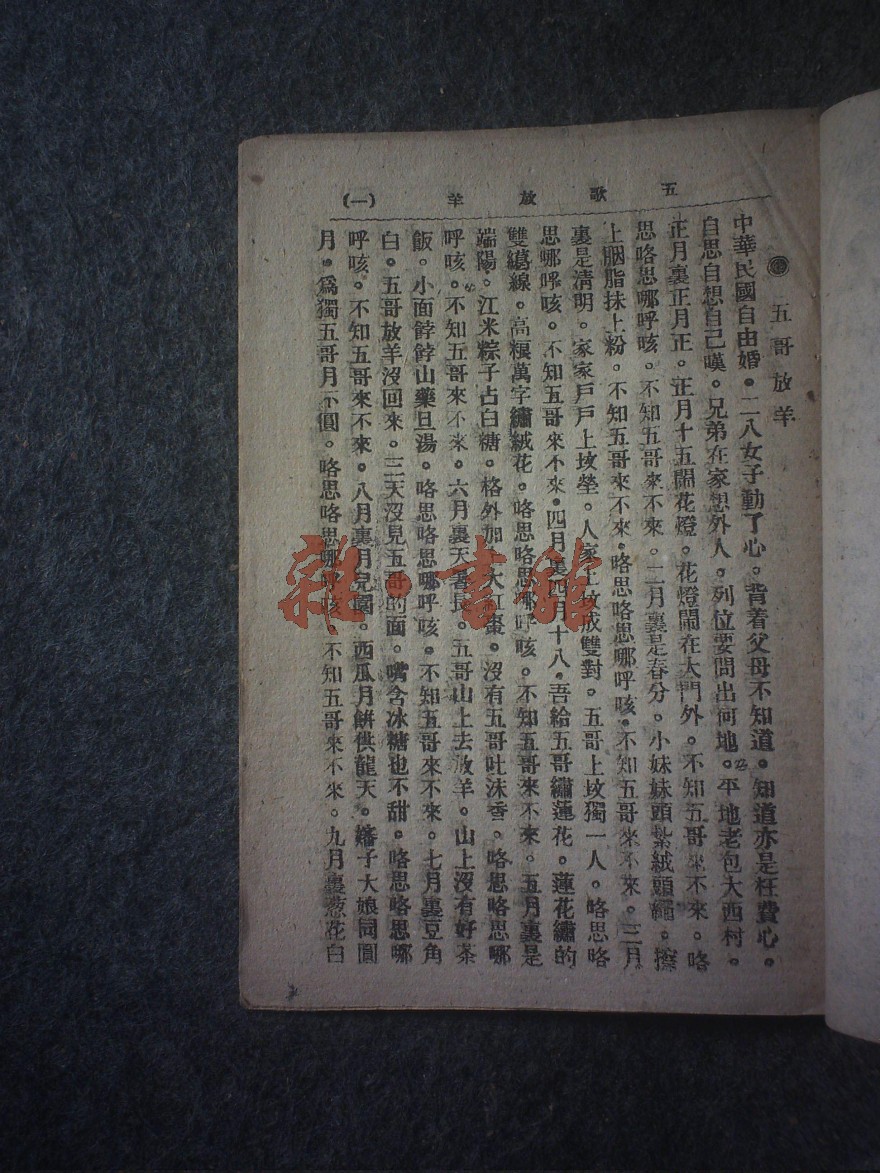 五歌放羊　(一)
五哥放羊
中華民國自由婚。二八女子動了心。背着父母不知道。知道亦是枉費心。
自思自想自己嘆。兄弟在家想外人。列位要問出何地。平地老包大西村。
正月裏正月正。正月十五鬧花燈。花燈鬧在大門外。不知五哥來不來。咯
思咯思哪呼咳。不知五哥來不來。二月裏是春分。小妹妹頭紮絨頭繩。擦
上胭脂抹上粉。不知五哥來不來。咯思咯思哪呼咳。不知五哥來不來。三月
裏是清明。家家戶戶上墳塋。人家上墳成雙對。五哥上墳獨一人。咯思咯
思哪呼咳。不知五哥來不來。四月裏四月十八。吾給五哥繡蓮花。蓮花繡的
雙線。高粮萬字繡絨花。咯思咯思哪呼咳。不知五哥來不來。五月裏是
端陽。江米粽子占白糖。格外加大紅棗。沒有五哥吐沫香。咯思咯思哪
呼咳。不知五哥來不來。六月裏天署長。五哥山上去放羊。山上沒有好茶
飯。小面餑餑山藥旦湯。咯思咯思哪呼咳。不知五哥來不來。七月裏豆角
白。五哥放羊沒回來。三天沒見五哥的面。嘴含冰糖也不甜。咯思咯思哪
呼咳。不知五哥來不來。八月裏月兒圓。西瓜月餅供龍天。嬸子大娘同圓
月。爲獨五哥月不圓。咯思咯思哪呼咳。不知五哥來不來。九月裏葱花白
雜·書館